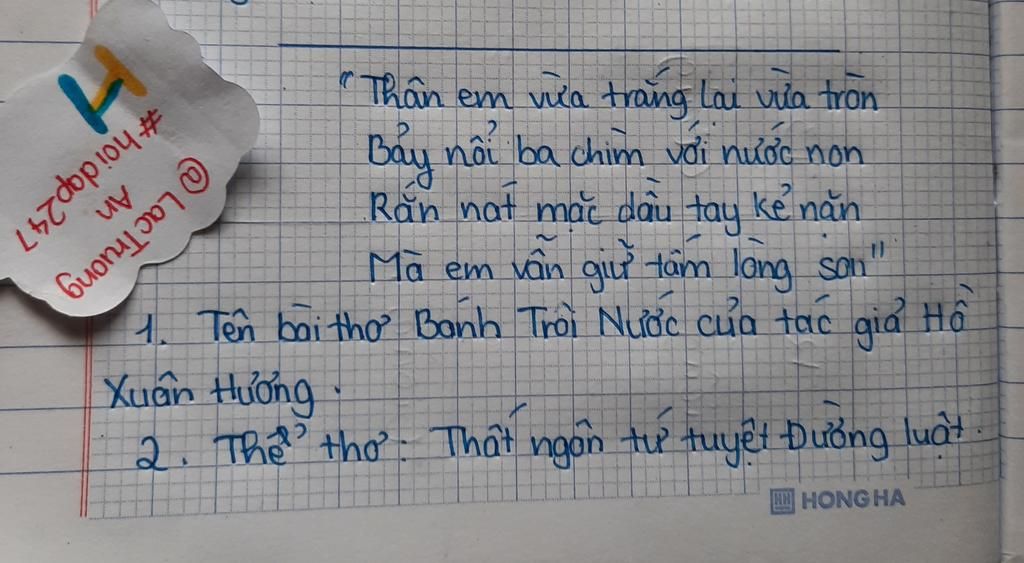 "Thân em vừa trắng lại vừa tròn
Bảy nổi ba chìm với nước non
Rắn nát mặc dầu tay kẻ nặn
Mà em vẫn giữ tấm lòng son"
1. Tên bài thơ Bánh Trôi Nước của tác giả Hồ
Xuân Hương.
2. Thể thơ: Thất ngôn tứ tuyệt Đường luật.
HONG HA
H
#hoidap247
An
@LacTruong